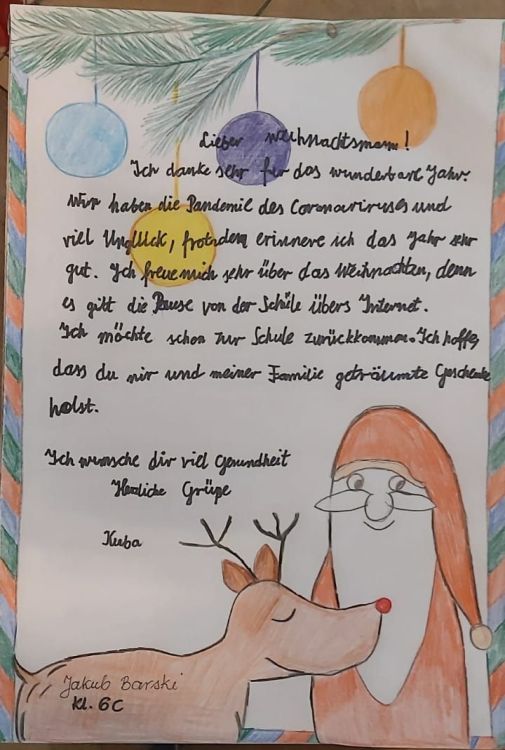 Lieber Weihnachtsmann!
Ich danke sehr für das wunderbare Jahr.
Wir haben die Pandemie des Coronaviruses und
viel Unglück, trotzdem erinnere ich das Jahr sehr
gut. Ich freue mich sehr über das Weihnachten, denn
es gibt die Pause von der Schule übers Internet.
Ich möchte schon zur Schule zurückkommen. Ich hoffe,
dass du mir und meiner Familie geträumte Geschenke
holst.
Ich wünsche dir viel Gesundheit
Herzliche Grüße
Kuba
Jakub Barski
kl. 6C